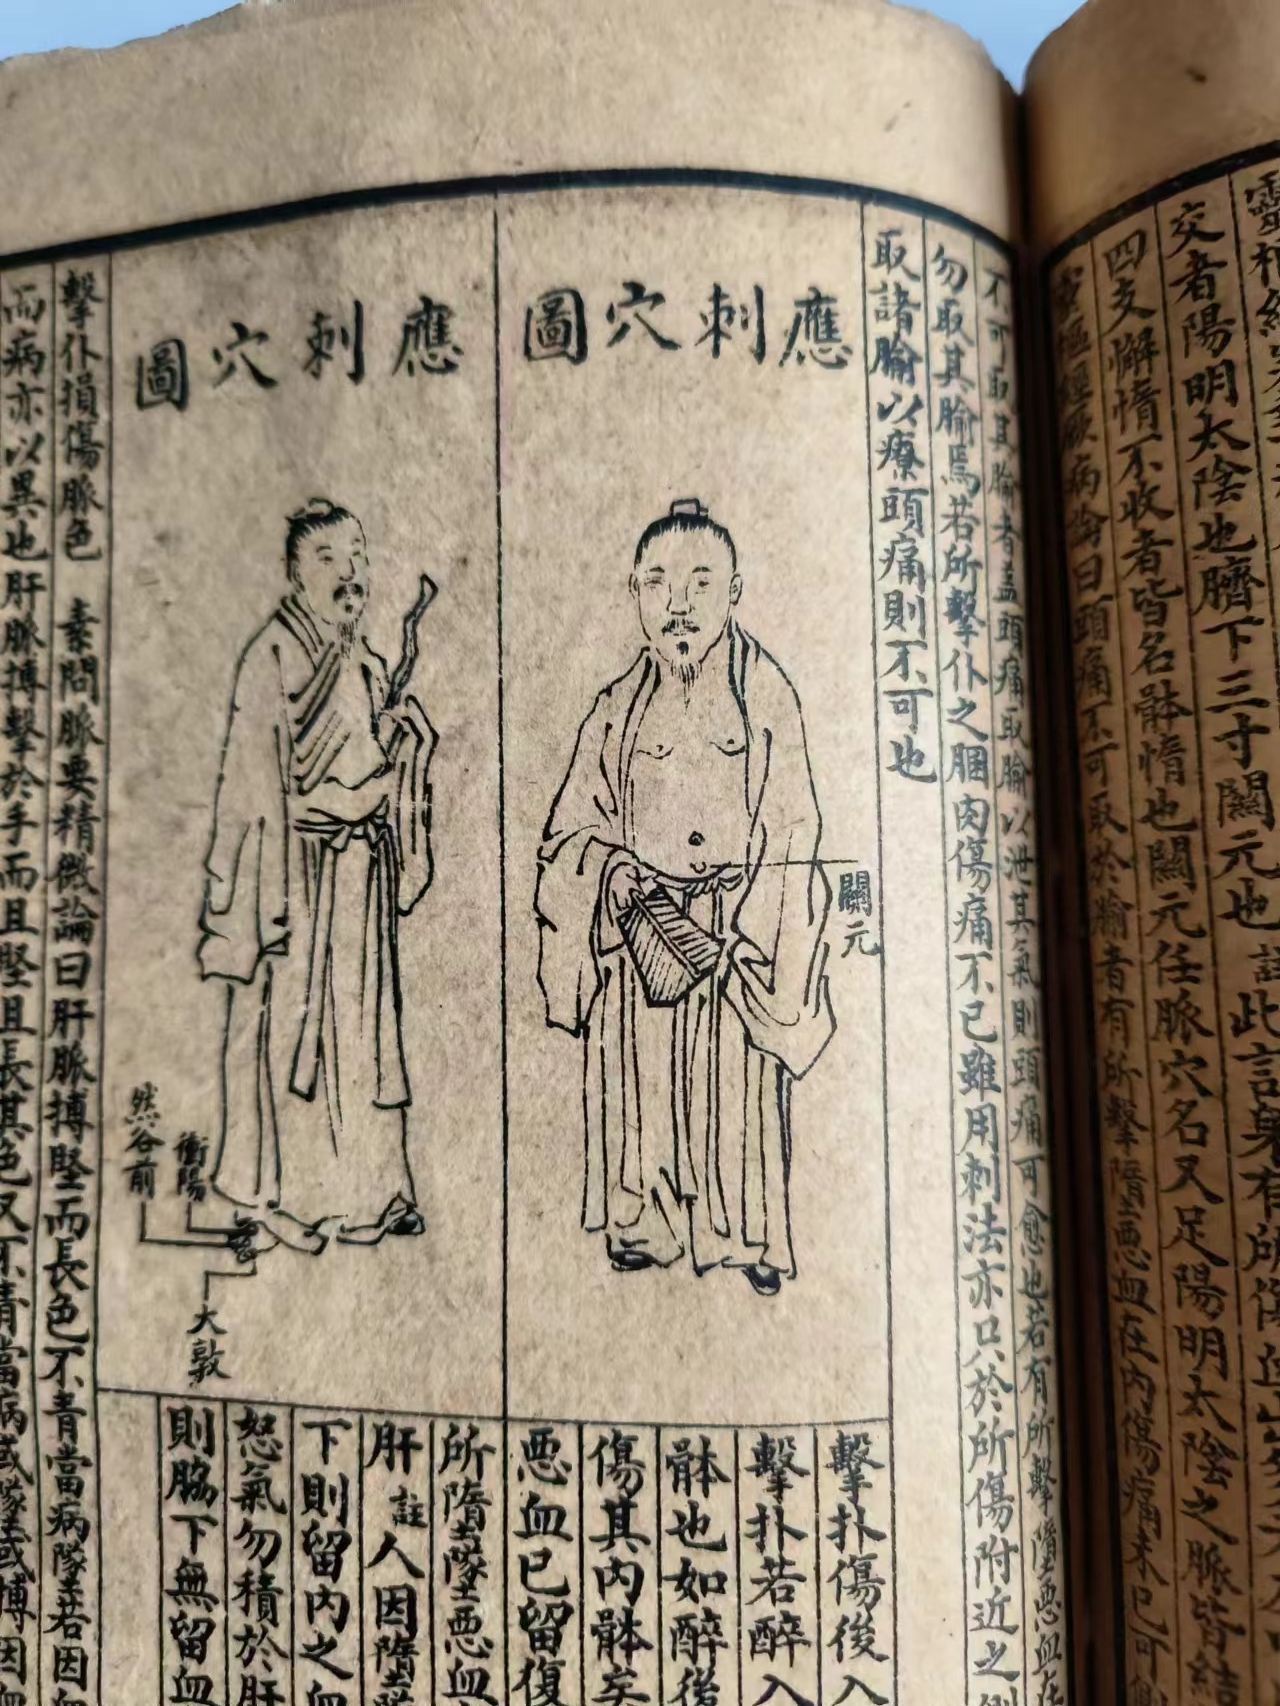 交者陽明太陰也臍下三寸關元也註此言身有所傷血出
四支懈惰不收者皆名骵惰也關元任脈穴名又足陽明太陰之脈皆結
靈樞經厥病論曰頭痛不可取於腧者有所擊墮惡血在內傷痛未已可
不可取其腧者蓋頭痛取腧以泄其氣則頭痛可愈也若有所擊墮惡血在
勿取其腧焉若所擊仆之䐃肉傷痛不已雖用刺法亦只於所傷附近之
取諸腧以療頭痛則不可也
應刺穴圖
關元
擊扑傷後入
擊扑若醉入
骵也如醉後
傷其內骵矣
惡血已留復
應刺穴圖
衝陽
然谷前
大敦
所墮墜惡血
肝註人因墮
下則留內之血
怒氣勿積於肝
則脇下無留血
擊仆損傷脈色 素問脈要精微論曰肝脈搏堅而長色不青當病墜若因血
而病亦以異也肝脈搏擊於手而且堅且長其色又不青當病或墜或搏因血